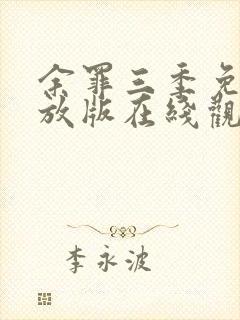 余罪三季免
放版在綫觀
李永波